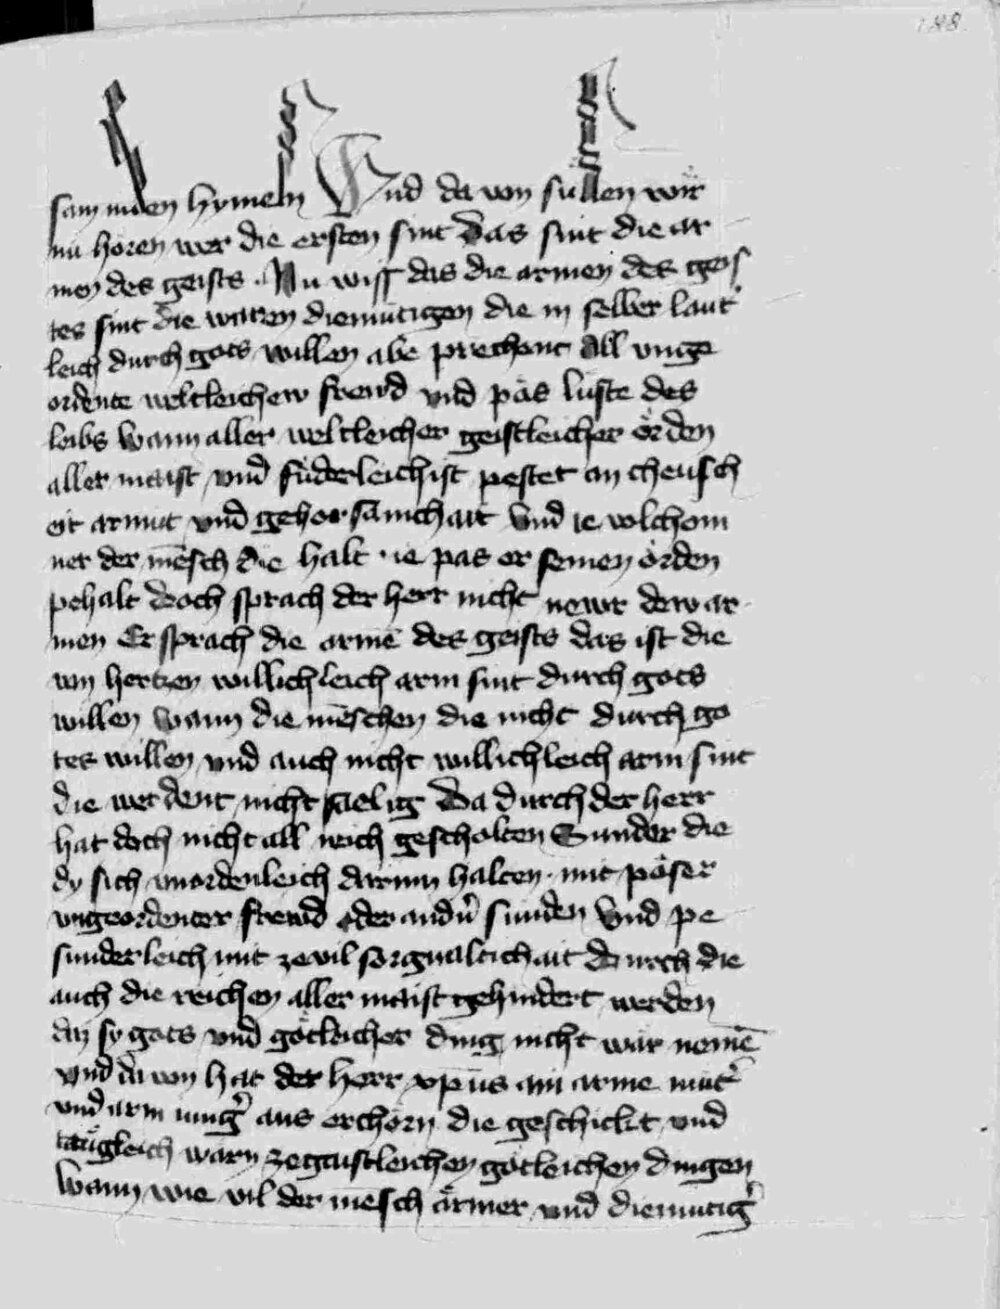 188
sam in den hymeln Und da von süllen wir
nu hören wer die ersten sint Das sint die ar
men des geists . Nu wiss das die armen des geis
tes sint die waren diemutigen die in selber laut
leich durch gots willen abe prechent all unge
ordente weltleichew frewd vnd pas lüste des
leibs Wann aller weltleicher geistleicher örden
aller maist vnd füderleich ist pestet an cheusch
eit armut vnd gehorsamchait Und ie volchom
ner der mēsch die halt . ie pas er seinen örden
pehalt doch sprach der herr nicht newr dew ar
men Er sprach die armē des geists das ist die
von hertzen willichleich arm sint durch gots
willen Wann die mēschen die nicht durch go
tes willen vnd auch nicht willichleich arm sint
die werdent nicht saelig Da durch der herr
hat doch nicht all reich gescholten Sunder die
dy sich vnordenleich darinn halten . mit pöser
vngeordenter frewd oder andn̄ sunden Und pe
sunderleich mit ze vil sorgualtichait durch die
auch die reichen aller maist gehindert werden
daz sy gots vnd götleicher ding nicht war nemē
Und da von hat der herr xpūs ain arme mut̄
vnd arm iunḡ aus erchorn die geschickt vnd
taugleich warn ze gaistleichen götleichen dingen
Wann wie vil der mēsch ärmer vnd diemutiḡ